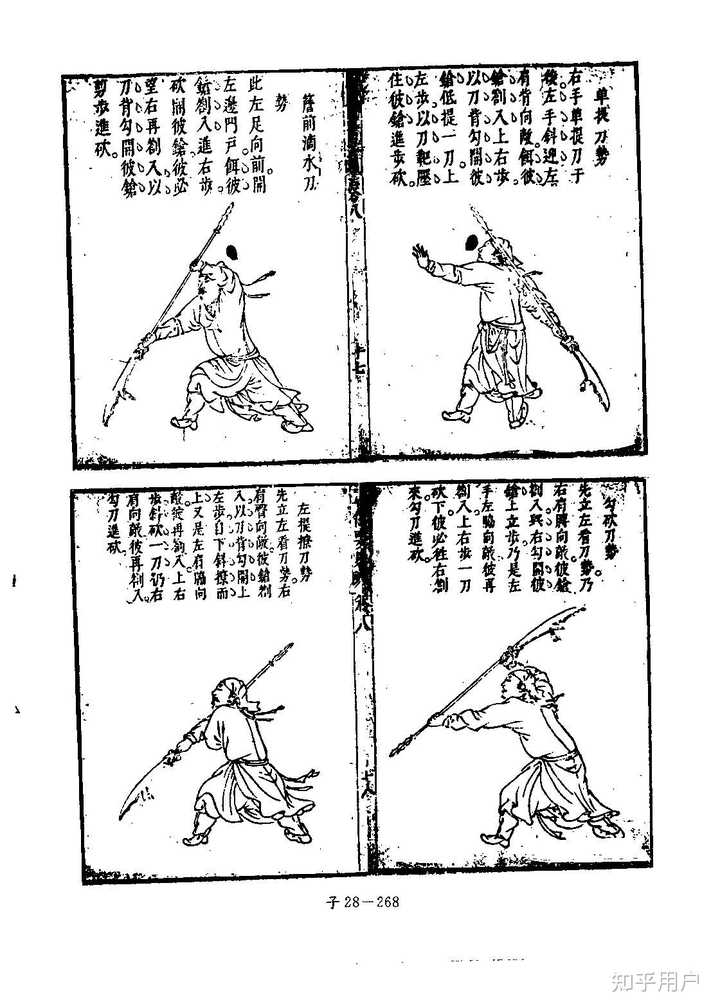 单提刀勢
右手单提刀于
後左手斜迎左
有背向敵餌彼
鎗劄入上右步
以刀背勾開彼
鎗低提一刀上
左步以刀靶壓
住彼鎗進步砍
卷八
十七
簷前滴水刀
勢
此左足向前開
左邊門戶餌彼
鎗劄入進右步
砍開彼鎗彼必
望右再劄入以
刀背勾開彼鎗
剪步進砍
勾砍刀勢
先立左看刀勢乃
右有膊向敵彼鎗
劄入我右勾開彼
鎗上立步乃是左
手左脇向敵彼再
劄入上右步一刀
砍下彼必往右劄
來勾刀進砍
卷八
十八
左提撩刀勢
先立左看刀勢右
有臂向敵彼鎗劄
入以刀背勾開上
左步自下斜撩而
上又是左有脇向
敵彼再劄入上右
步斜砍一刀仍右
有向敵彼再劄入
勾刀進砍
子28－268
知乎用户